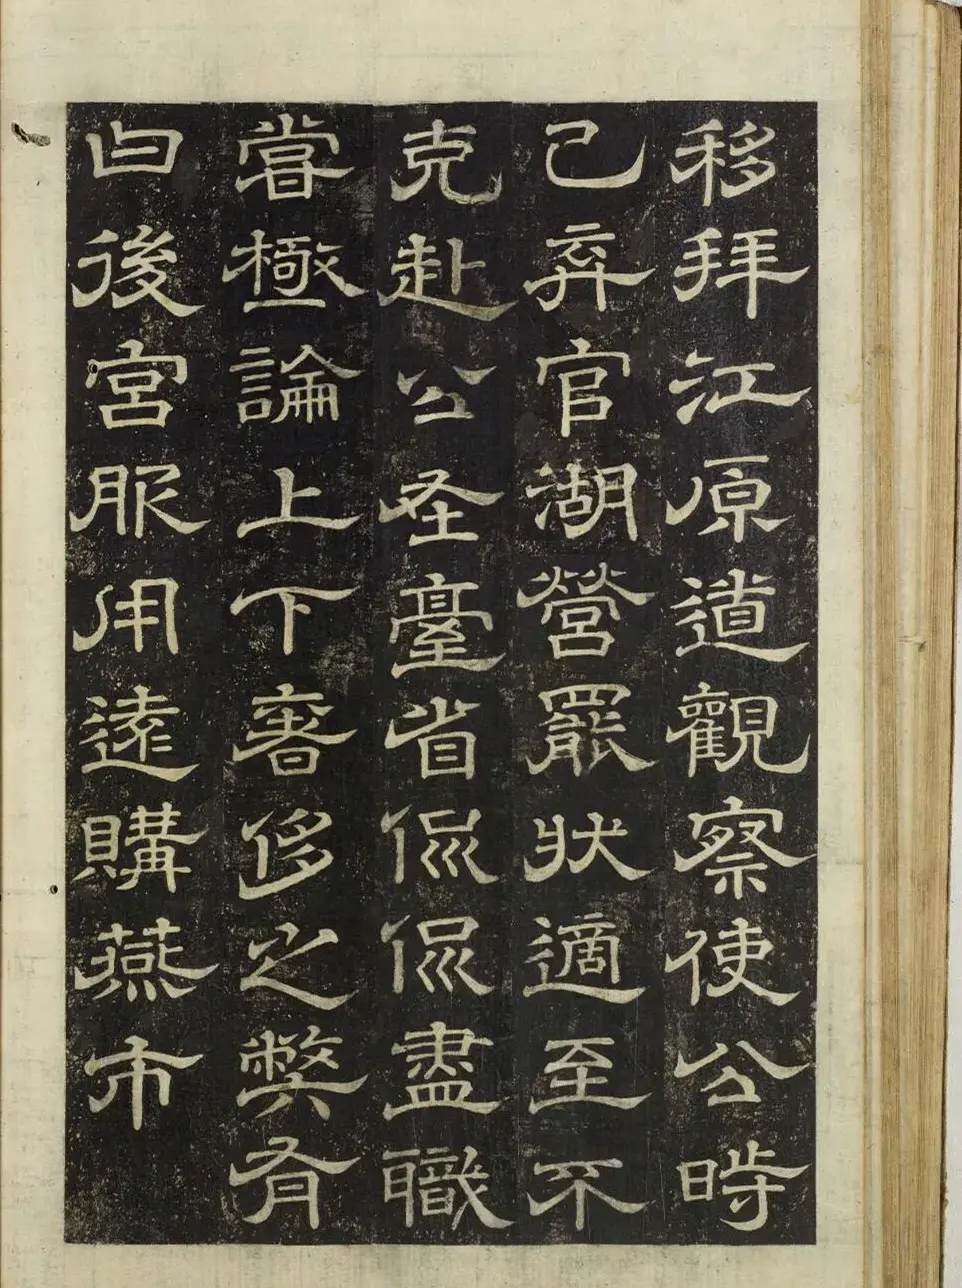 移拜江原道觀察使公時
已弃官湖營罷狀適至不
克赴公在臺省侃侃盡職
嘗極論上下奢侈之弊有
曰後宮服用遠購燕市